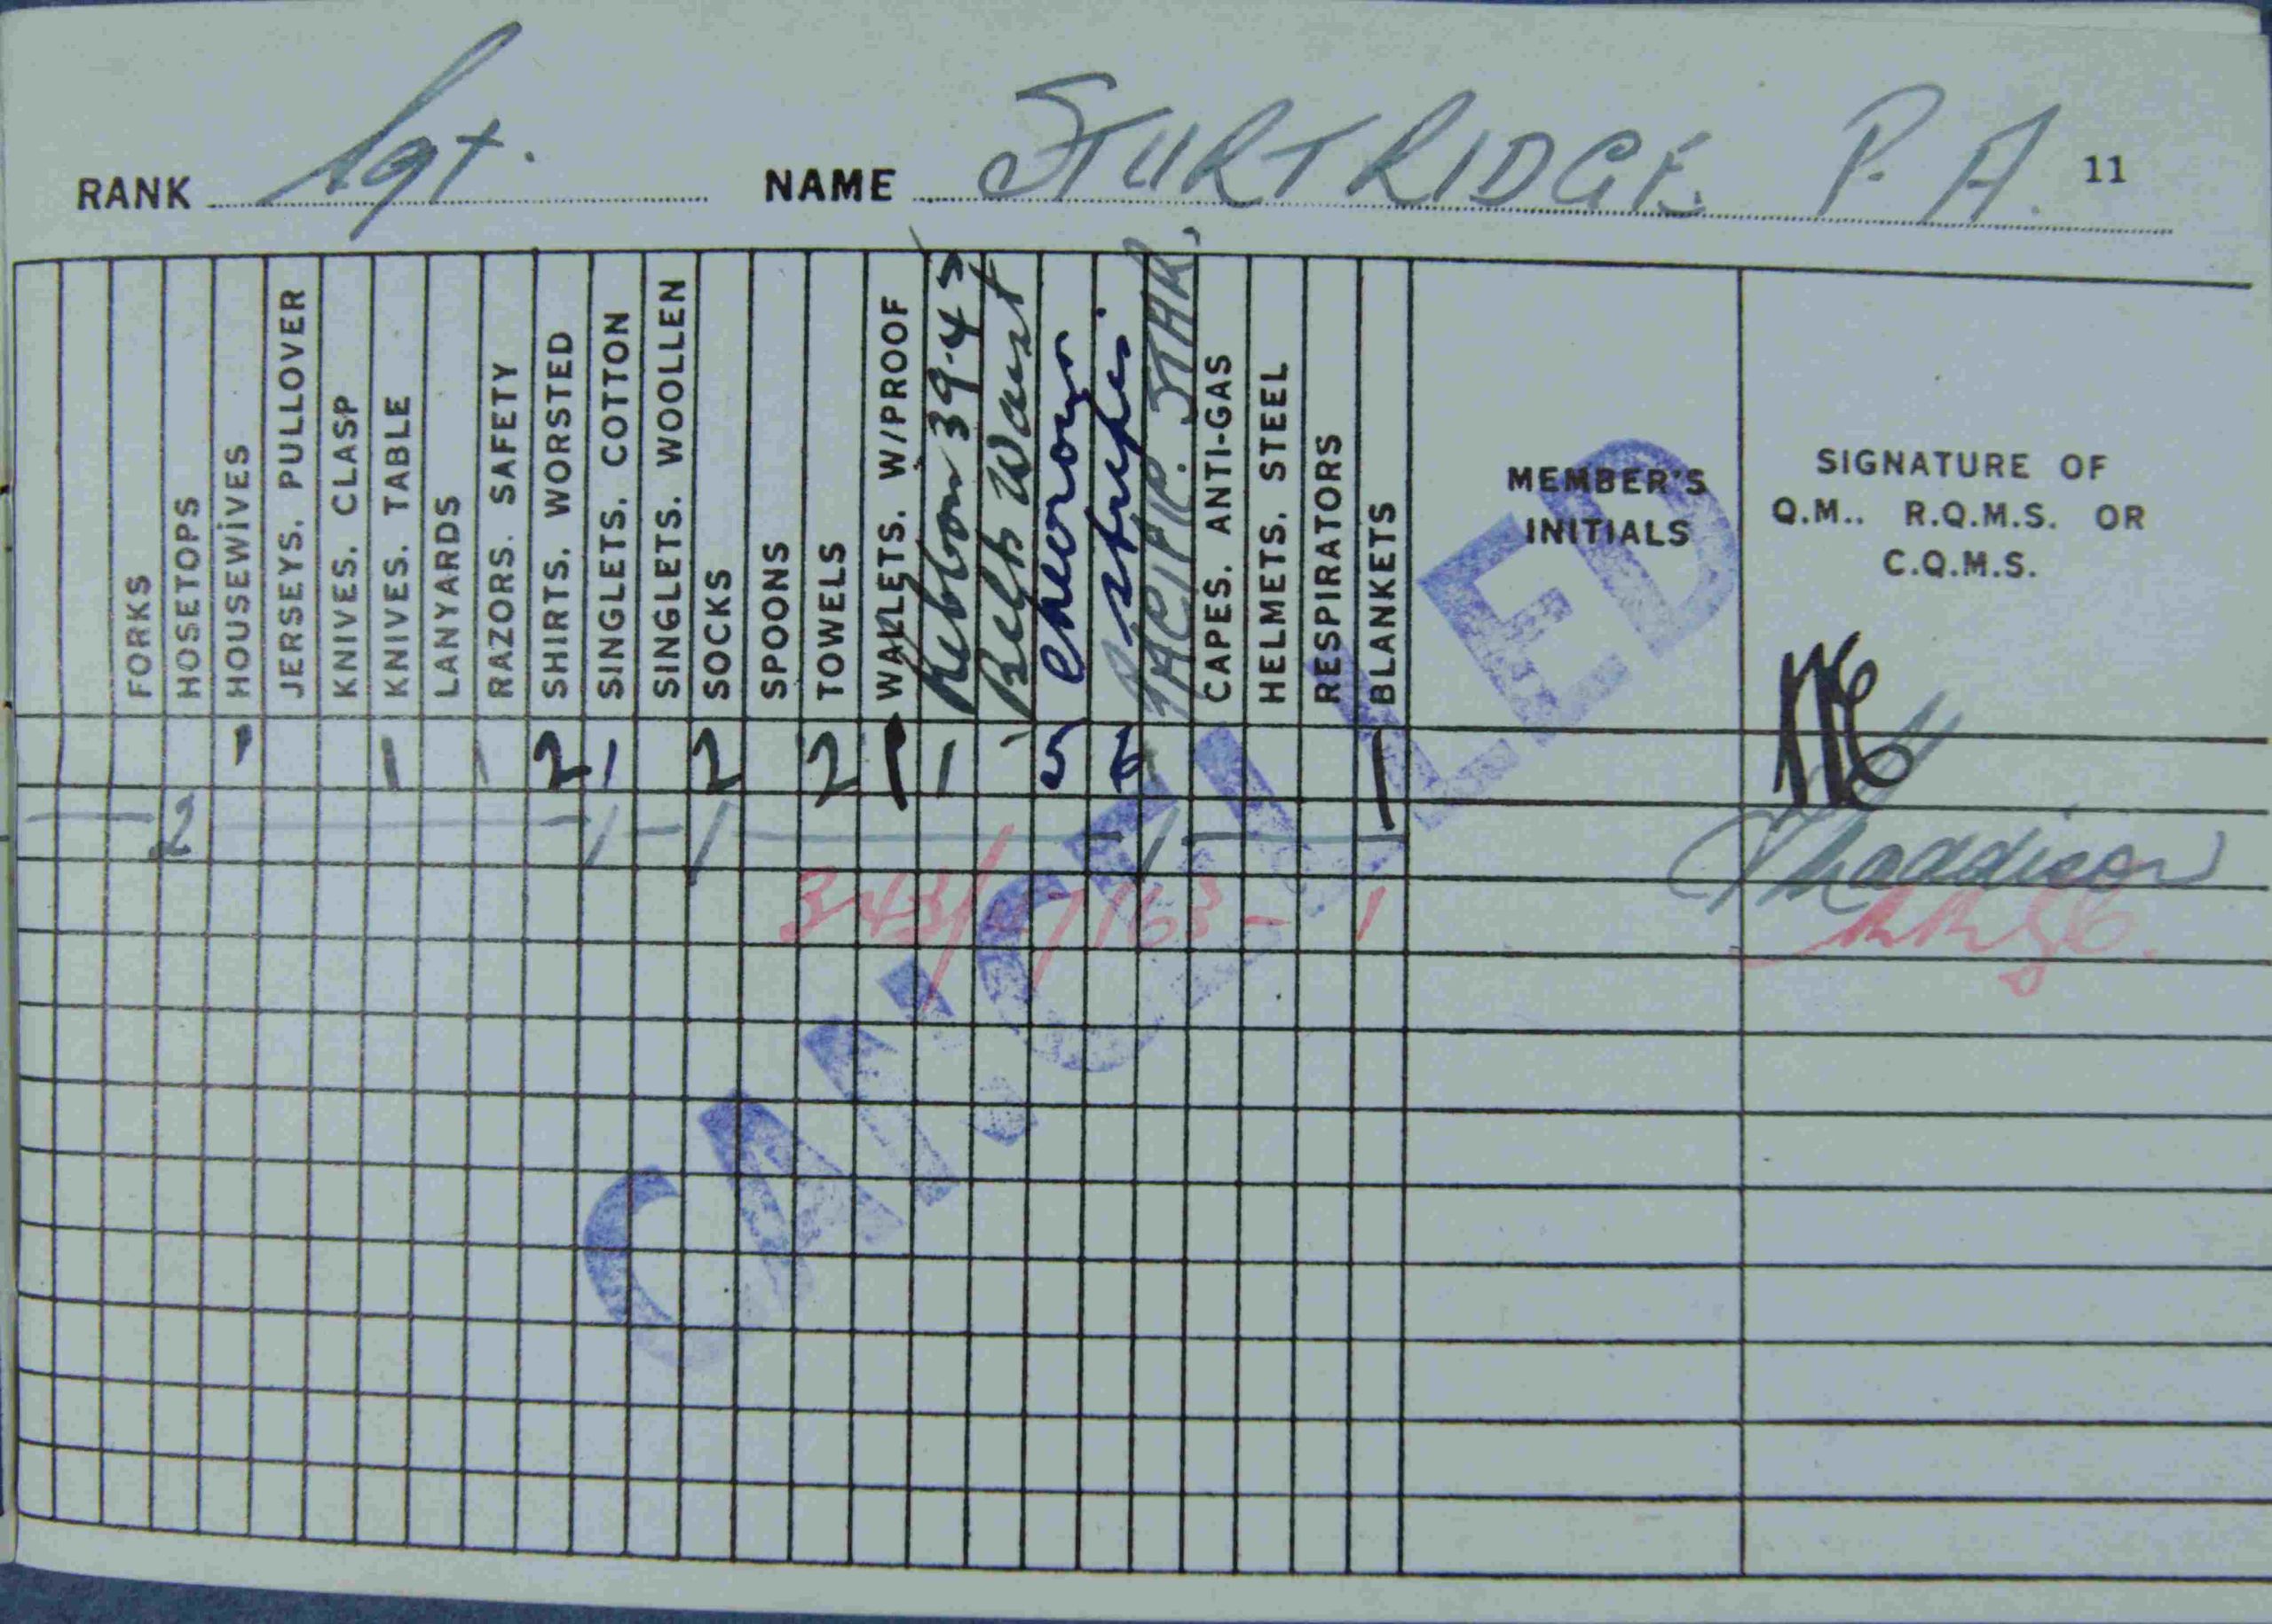 RANK Sgt. NAME STURTRIDGE P. A. 11
FORKS
HOSETOPS
HOUSEWIVES
JERSEYS. PULLOVER
KNIVES. CLASP
KNIVES. TABLE
LANYARDS
RAZORS. SAFETY
SHIRTS. WORSTED
SINGLETS. COTTON
SINGLETS. WOOLLEN
SOCKS
SPOONS
TOWELS
WALLETS. W/PROOF
Ribbon 39-43
Belts Waist
chevrons
stripes.
PACIFIC. STAR.
CAPES. ANTI-GAS
HELMETS. STEEL
RESPIRATORS
BLANKETS
MEMBER'S
INITIALS
SIGNATURE OF
Q.M.. R.Q.M.S. OR
C.Q.M.S.
1 1 1 2 1 2 2 1 1 1 5 6 1 1
2 1 1 1 Maddison
343/ 7163 - 1
CANCELLED